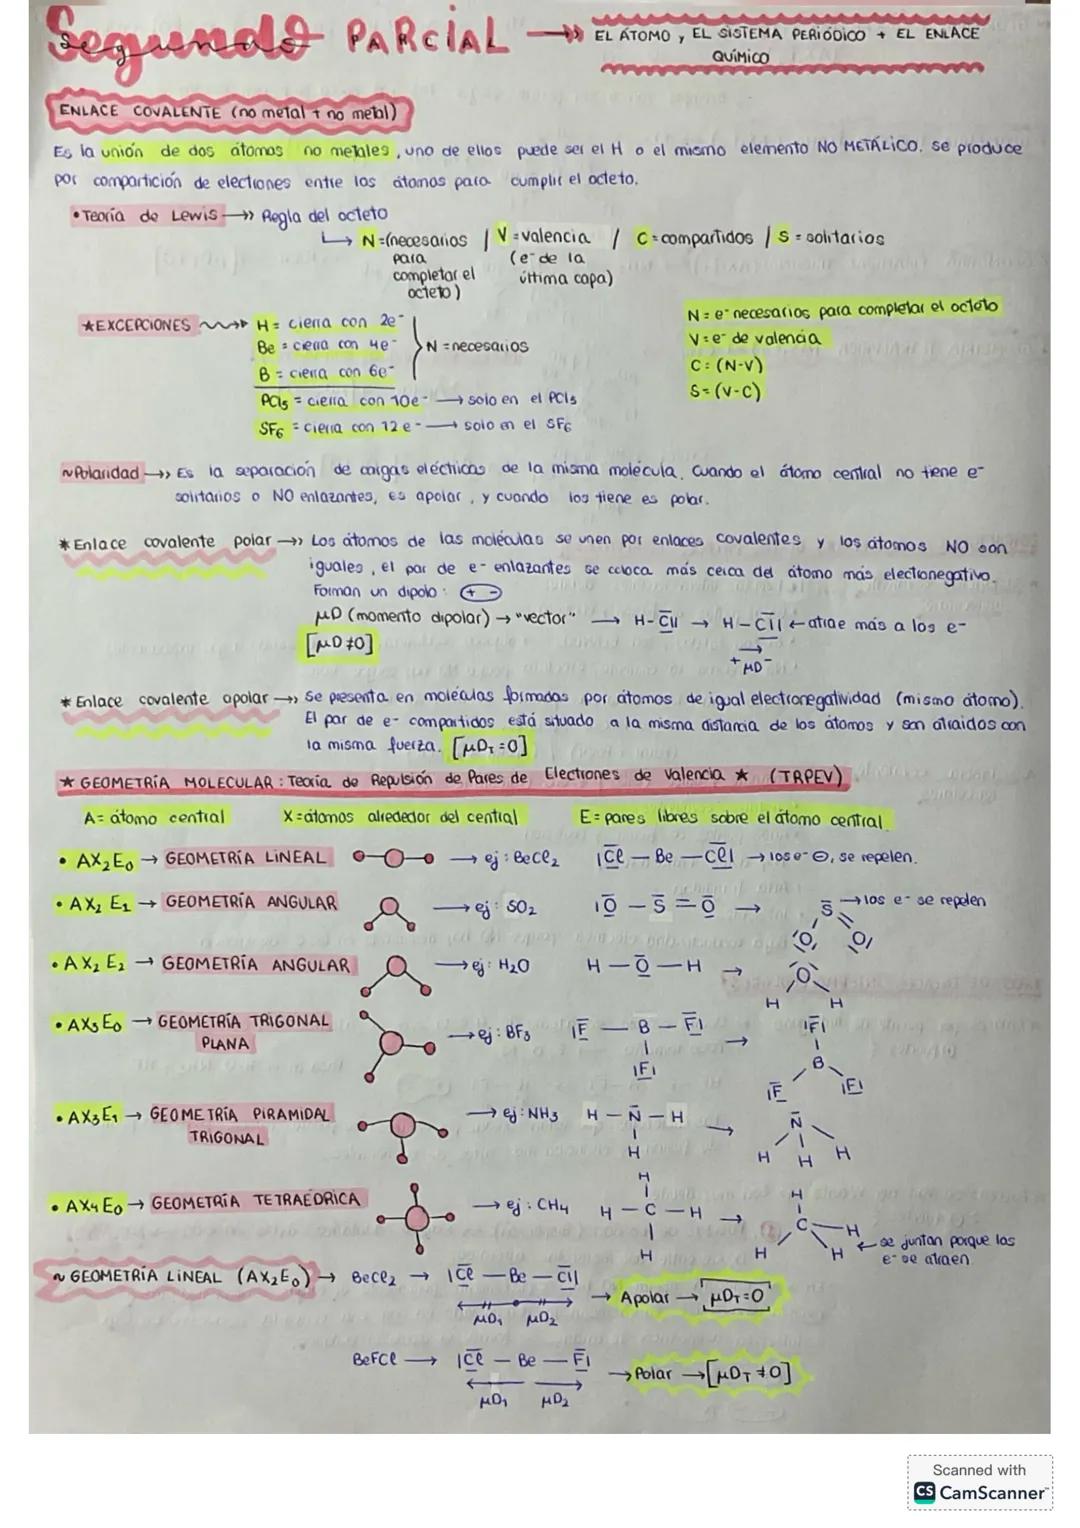 Segundo PARCIAL →» EL ÁTOMO, EL SISTEMA PERIÓDICO + EL ENLACE
QUÍMICO
ENLACE COVALENTE (no metal + no metal)
Es la unión de dos átomos no metales, uno de ellos puede ser el H o el mismo elemento NO METÁLICO. Se produce
por compartición de electrones entre los átomos para cumplir el octeto.
• Teoría de Lewis →» Regla del octeto
↳ N=(necesarios / V=valencia / C=compartidos / S=solitarios
para (e⁻ de la
completar el última capa)
octeto)
★EXCEPCIONES → H = cierra con 2e⁻
Be = cierra con 4e⁻ N = necesarios
B = cierra con 6e⁻
PCl5 = cierra con 10e⁻ → solo en el PCl5
SF6 = cierra con 12e⁻ → solo en el SF6
N = e⁻ necesarios para completar el octeto
V = e⁻ de valencia
C: (N-V)
S= (V-C)
~Polaridad →» Es la separación de cargas eléctricas de la misma molécula. Cuando el átomo central no tiene e⁻
solitarios o NO enlazantes, es apolar, y cuando los tiene es polar.
* Enlace covalente polar →» Los átomos de las moléculas se unen por enlaces covalentes y los átomos NO son
iguales, el par de e⁻ enlazantes se coloca más cerca del átomo más electronegativo.
Forman un dipolo: (+ -)
μD (momento dipolar) → "vector" → H-Cl → H-Cl ← atrae más a los e⁻
[μD≠0]
+ μD -
* Enlace covalente apolar →» Se presenta en moléculas formadas por átomos de igual electronegatividad (mismo átomo).
El par de e⁻ compartidos está situado a la misma distancia de los átomos y son atraídos con
la misma fuerza. [μDT=0]
★ GEOMETRÍA MOLECULAR: Teoría de Repulsión de Pares de Electrones de Valencia ★ (TRPEV)
A= átomo central X=átomos alrededor del central E= pares libres sobre el átomo central
• AX2E0 → GEOMETRÍA LINEAL → ej: BeCl2 |Cl — Be — Cl| → los e⁻ ⊖, se repelen.
• AX2 E1 → GEOMETRÍA ANGULAR → ej: SO2 |O — S = O → S → los e⁻ se repelen
O O
• AX2 E2 → GEOMETRÍA ANGULAR → ej: H2O H — O — H → O
H H
• AX3 E0 → GEOMETRÍA TRIGONAL → ej: BF3 |F — B — F| → |F|
PLANA |F| B
|F |F|
• AX3E1 → GEOMETRÍA PIRAMIDAL → ej: NH3 H — N — H → N
TRIGONAL H H H H
H
• AX4 E0 → GEOMETRÍA TETRAÉDRICA → ej: CH4 H — C — H → H
C — H
H H H ← se juntan porque los
e⁻ se atraen
~ GEOMETRÍA LINEAL (AX2E0) → BeCl2 → |Cl — Be — Cl|
μD1 μD2 → Apolar → μDT=0
BeFCl → |Cl — Be — F|
μD1 μD2 → Polar → [μDT ≠0]
Scanned with
CS CamScanner